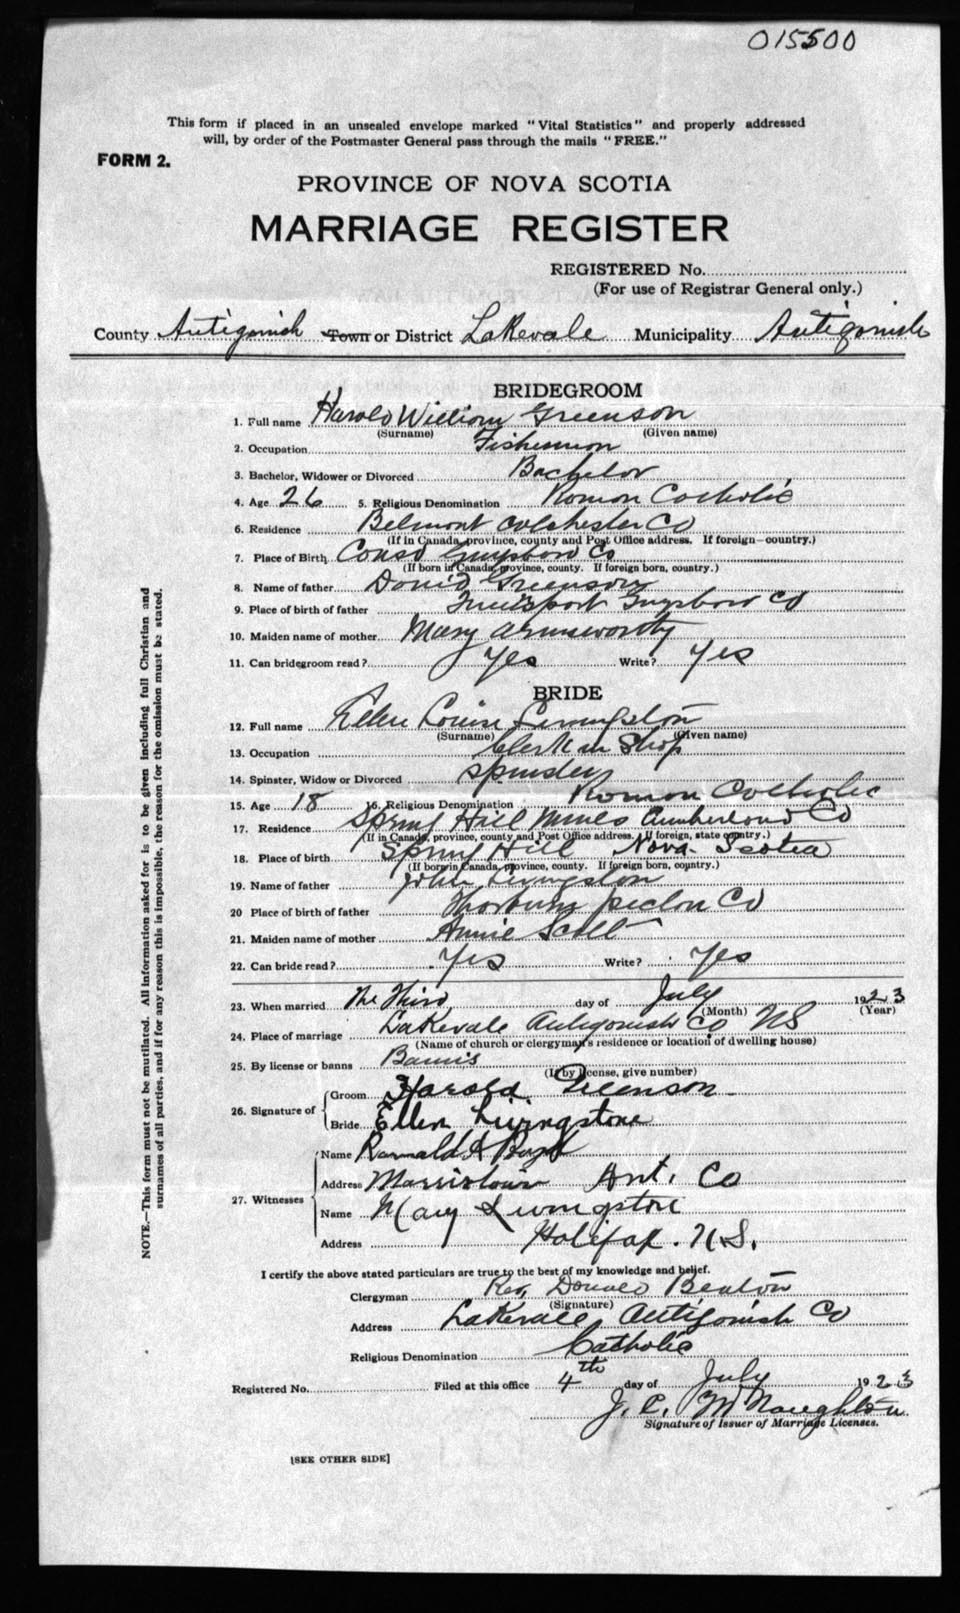 015500
This form if placed in an unsealed envelope marked "Vital Statistics" and properly addressed
will, by order of the Postmaster General pass through the mails "FREE."
FORM 2.
PROVINCE OF NOVA SCOTIA
MARRIAGE REGISTER
REGISTERED No.
(For use of Registrar General only.)
County Antigonish Town or District Lakevale Municipality Antigonish
BRIDEGROOM
1. Full name Harold William Greenson
(Surname) (Given name)
2. Occupation Fisherman
3. Bachelor, Widower or Divorced Bachelor
4. Age 26 5. Religious Denomination Roman Catholic
6. Residence Belmont Colchester Co
(If in Canada, province, county and Post Office address. If foreign—country.)
7. Place of Birth Canso Guysboro Co
(If born in Canada, province, county. If foreign born, country.)
8. Name of father David Greenson
9. Place of birth of father Guysboro Co
10. Maiden name of mother Mary Armsworthy
11. Can bridegroom read? Yes Write? Yes
BRIDE
12. Full name Ellen Louise Livingston
(Surname) (Given name)
13. Occupation Clerk in Shop
14. Spinster, Widow or Divorced Spinster
15. Age 18 16. Religious Denomination Roman Catholic
17. Residence Spring Hill Mines Cumberland Co
(If in Canada, province, county and Post Office address. If foreign, state country.)
18. Place of birth Spring Hill Nova Scotia
(If born in Canada, province, county. If foreign born, country.)
19. Name of father John Livingston
20 Place of birth of father Thorburn Pictou Co
21. Maiden name of mother Annie Scott
22. Can bride read? Yes Write? Yes
23. When married The Third day of July 1923
(Month) (Year)
24. Place of marriage Lakevale Antigonish Co NS
(Name of church or clergyman's residence or location of dwelling house)
25. By license or banns Banns
(If by license, give number)
26. Signature of Groom Harold Greenson
Bride Ellen Livingstone
27. Witnesses Name Ronald A
Address Morristown Ant. Co
Name Mary Livingstone
Address Halifax. N.S.
I certify the above stated particulars are true to the best of my knowledge and belief.
Clergyman Rev. Donald Beaton
(Signature)
Address Lakevale Antigonish Co
Religious Denomination Catholic
Registered No. Filed at this office 4th day of July 1923
J. C. McNaughton
Signature of Issuer of Marriage Licenses.
[SEE OTHER SIDE]
NOTE.—This form must not be mutilated. All information asked for is to be given including full Christian and
surnames of all parties, and if for any reason this is impossible, the reason for the omission must be stated.